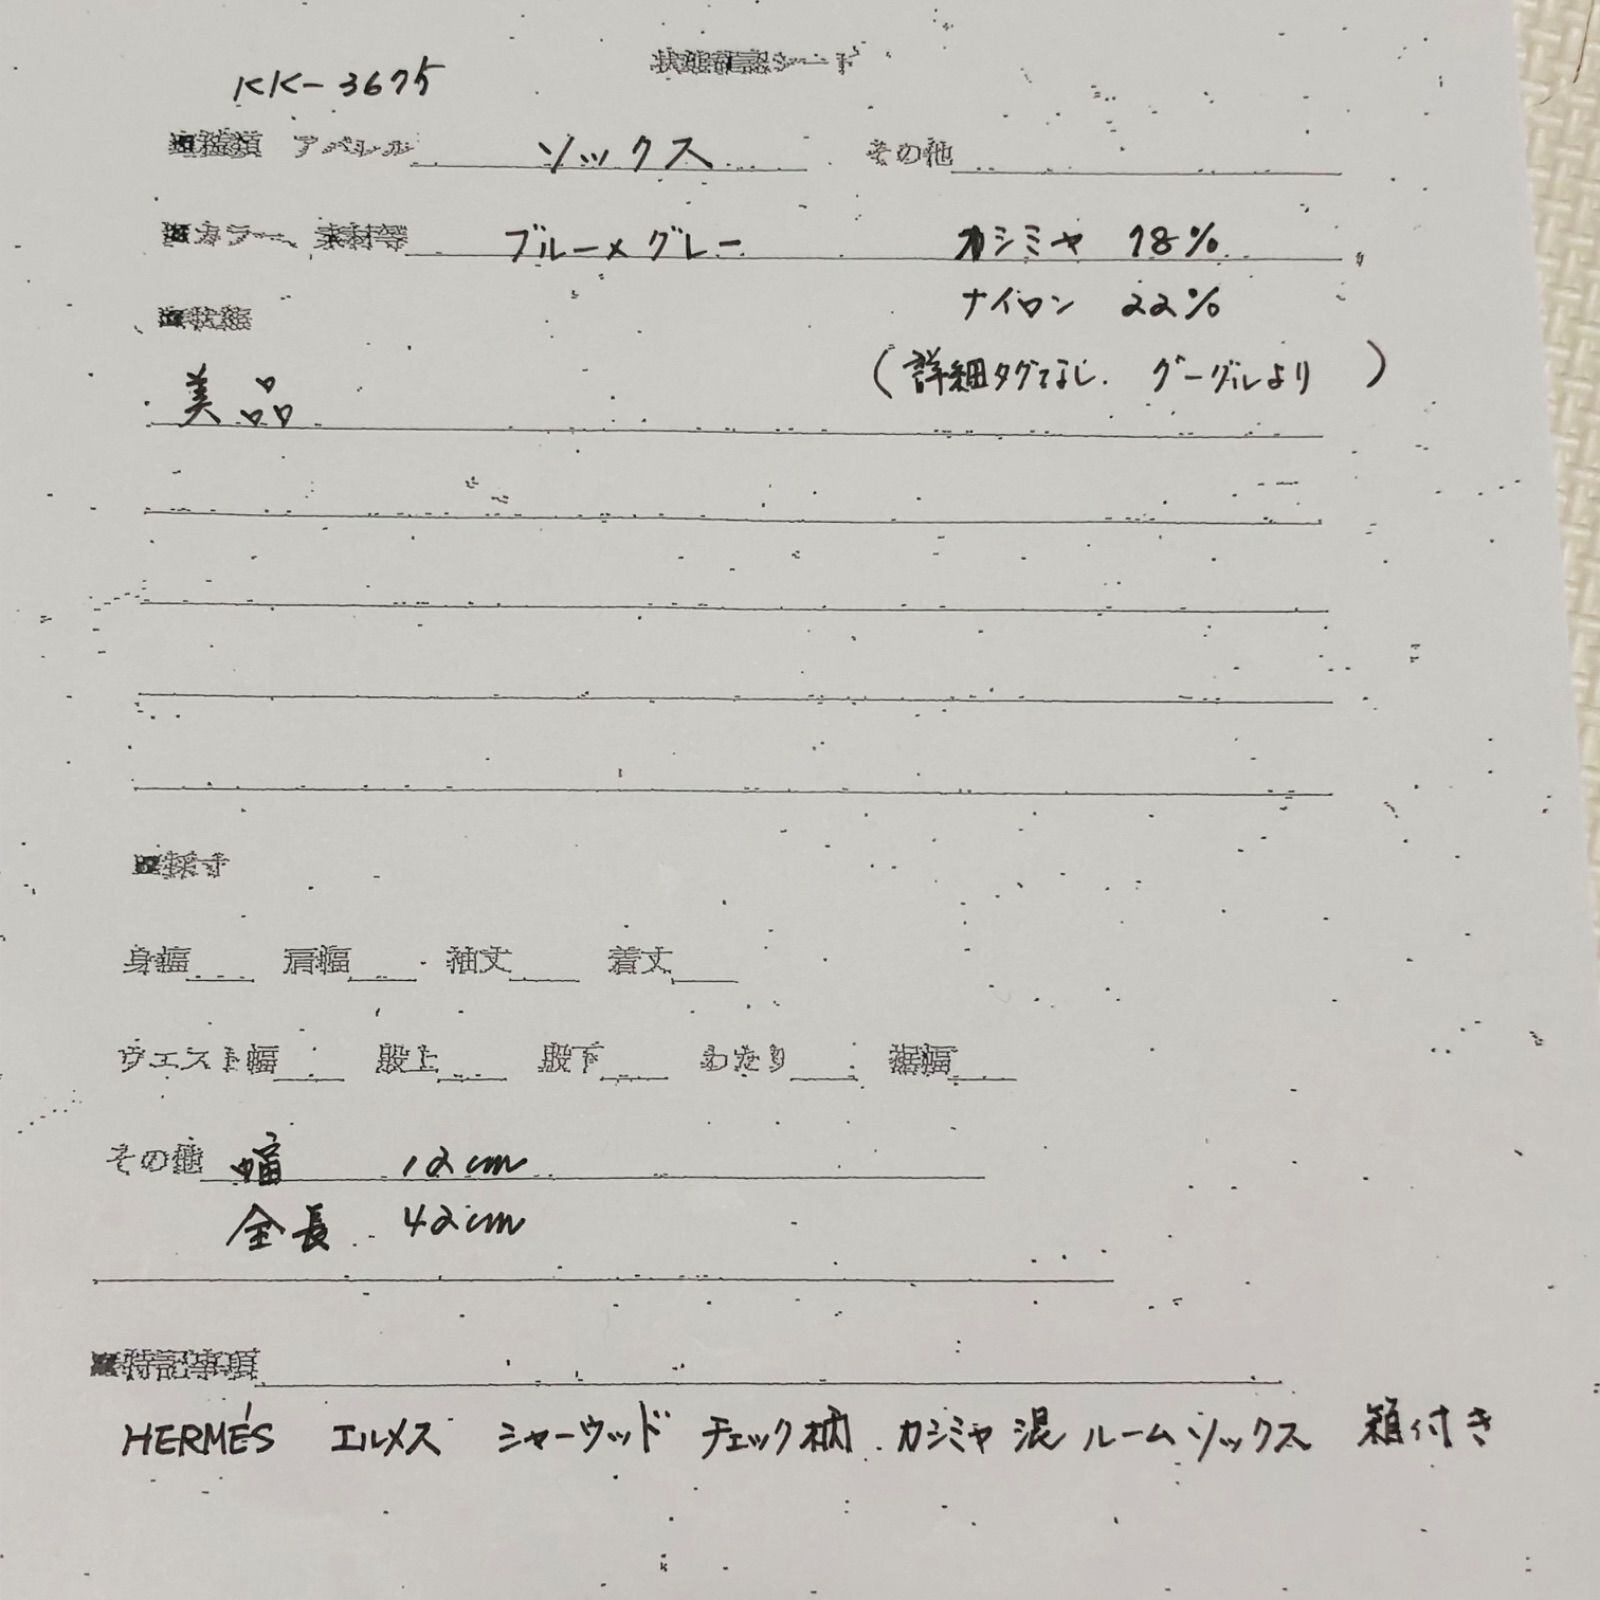 状態確認シート
KK-3675
■種類 アパレル ソックス その他
■カラー、素材等 ブルー×グレー カシミヤ 78%
ナイロン 22%
■状態
(詳細タグなし. グーグルより)
美品
■採寸
身幅 肩幅 袖丈 着丈
ウエスト幅 股上 股下 わたり 裾幅
その他 幅 12cm
全長 42cm
■特記事項
HERMÉS エルメス シャーウッド チェック柄 カシミヤ混 ルームソックス 箱付き